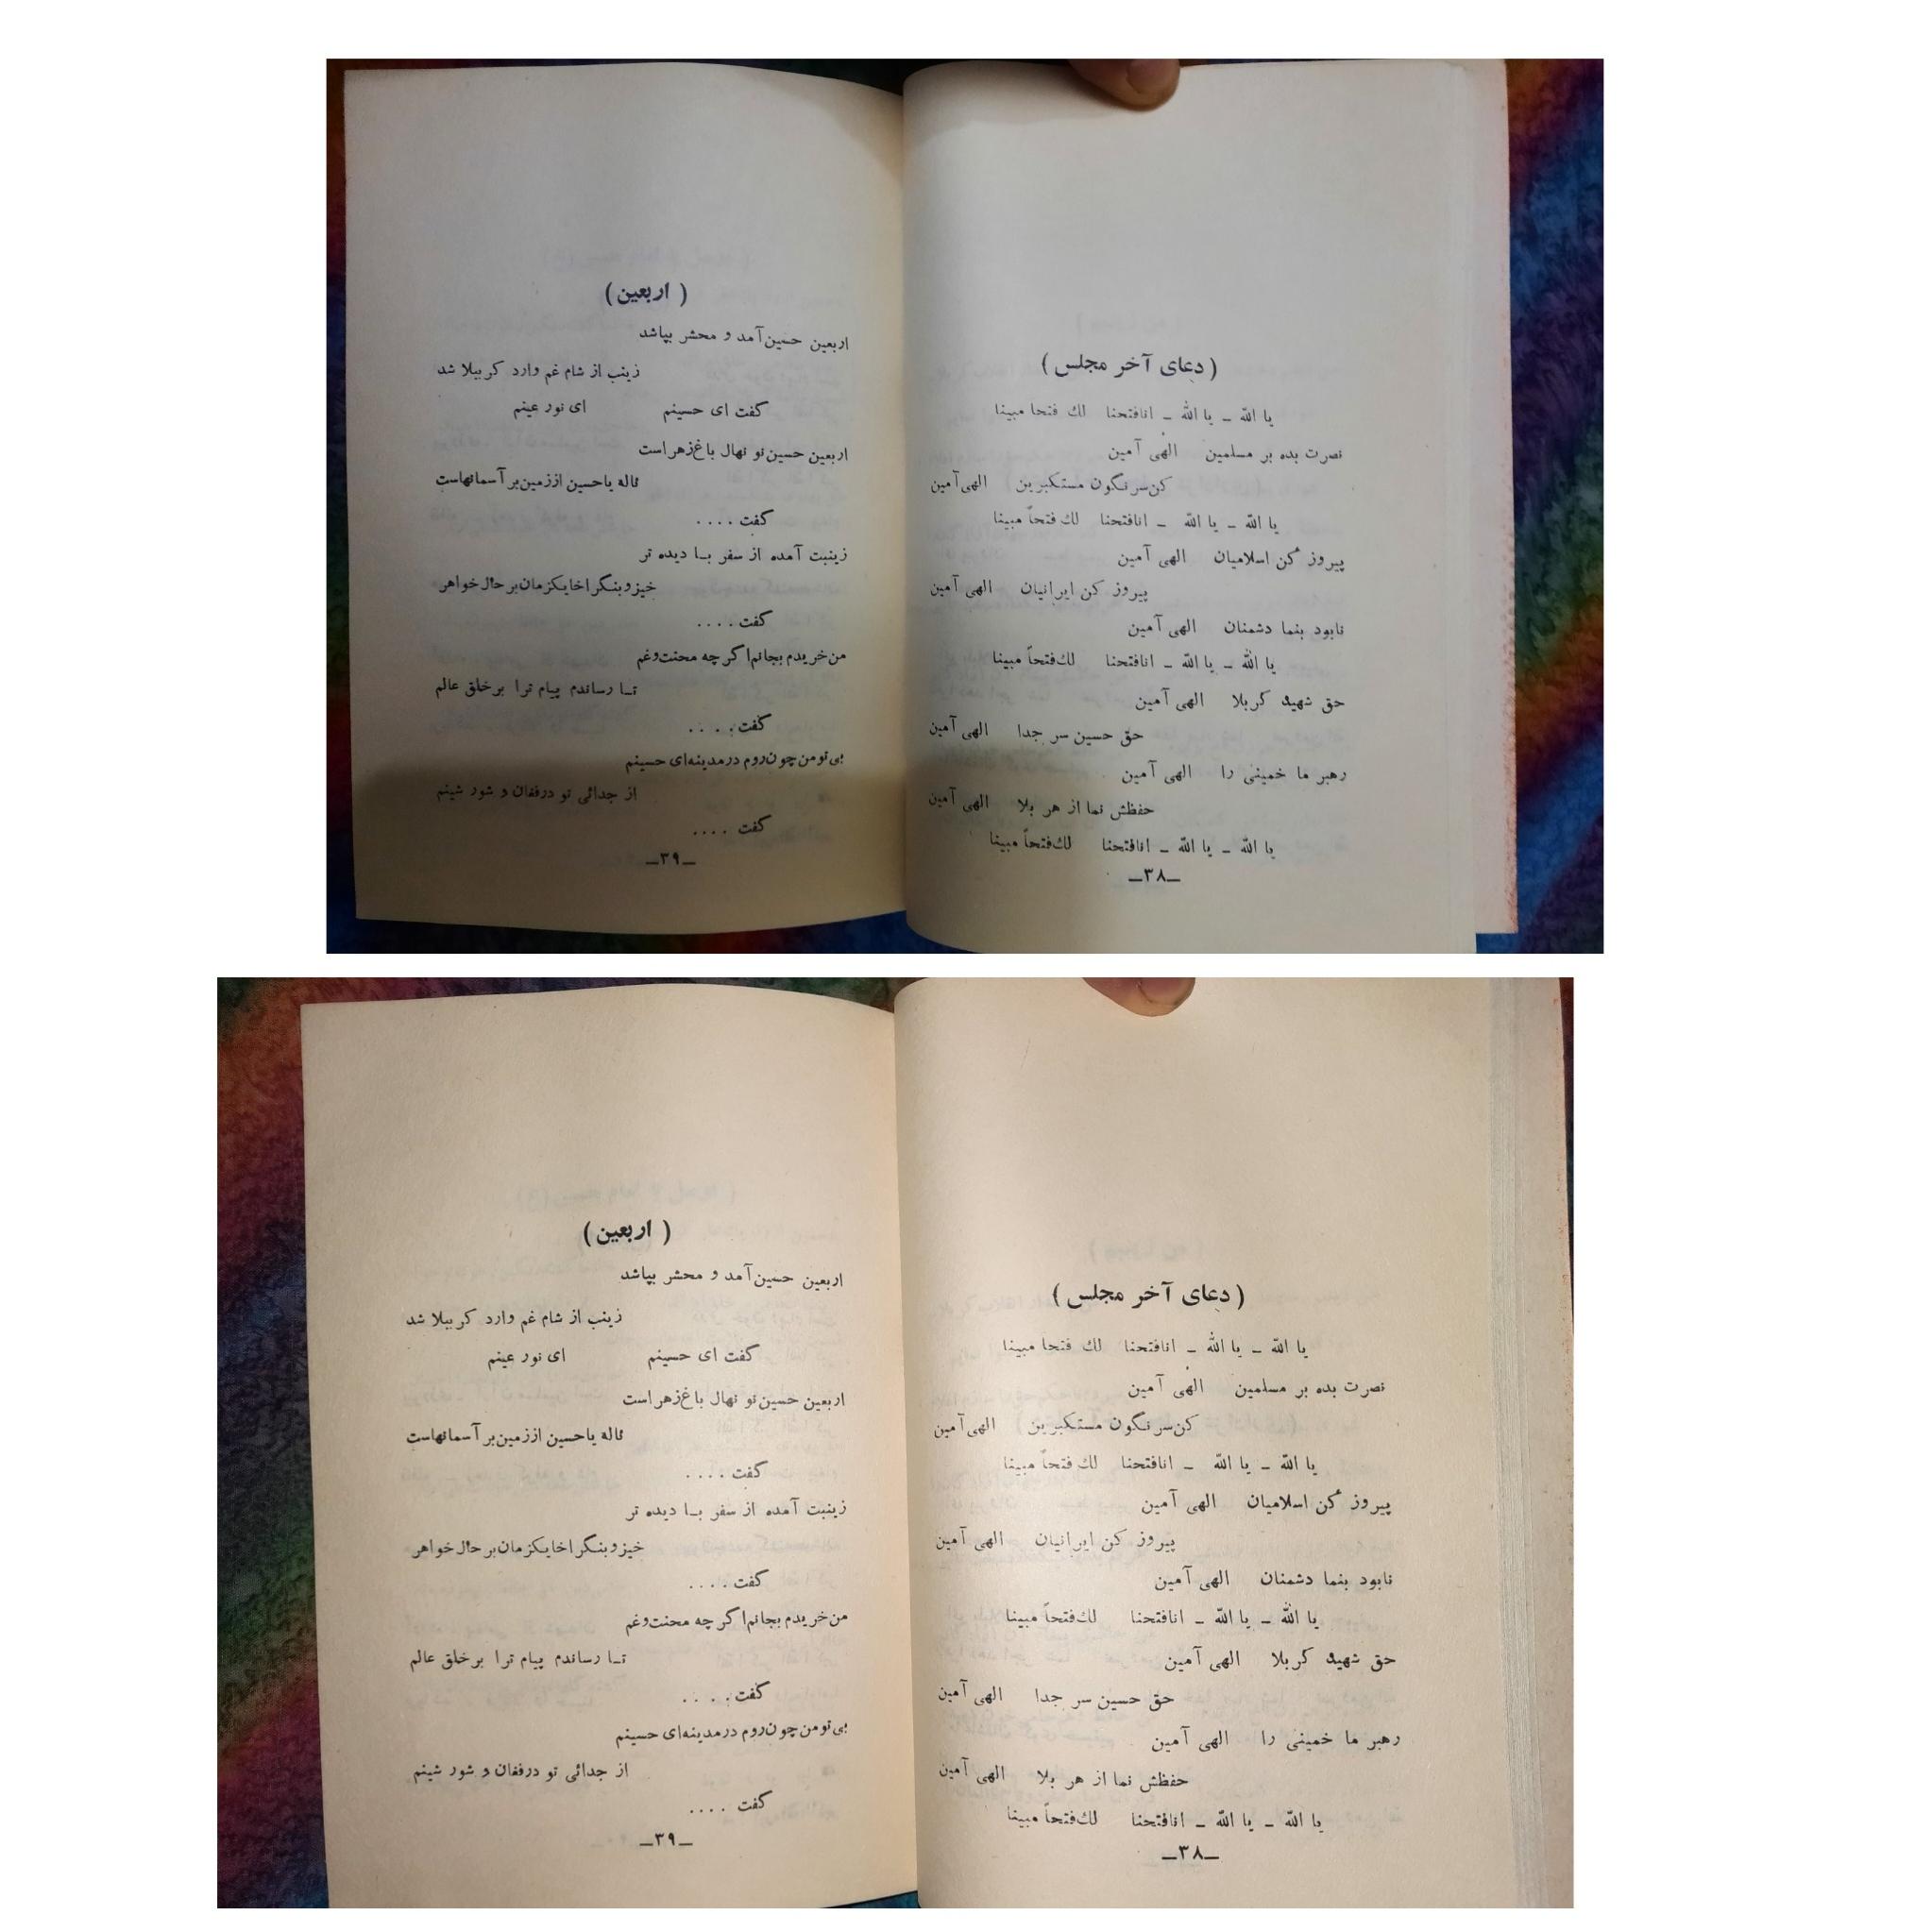 ( دعای آخر مجلس )
یا الله ــ یا الله ــ انافتحنا لك فتحا مبینا
نصرت بده بر مسلمین الهی آمین
کن‌سرنگون مستکبرین الهی آمین
یا الله ــ یا الله ــ انافتحنا لك فتحاً مبینا
پیروز کن اسلامیان الهی آمین
پیروز کن ایرانیان الهی آمین
نابود بنما دشمنان الهی آمین
یا الله ــ یا الله ــ انافتحنا لك‌فتحاً مبینا
حق شهید کربلا الهی آمین
حق حسین سر جدا الهی آمین
رهبر ما خمینی را الهی آمین
حفظش نما از هر بلا الهی آمین
یا الله ــ یا الله ــ انافتحنا لك‌فتحاً مبینا
ــ۳۸ــ
( اربعین )
اربعین حسین آمد و محشر بپاشد
زینب از شام غم وارد کرببلا شد
گفت ای حسینم ای نور عینم
اربعین حسین تو نهال باغ زهراست
ناله یاحسین اززمین بر آسمانهاست
گفت ....
زینبت آمده از سفر بــا دیده تر
خیزوبنگر اخایکزمان بر حال خواهر
گفت ....
من خریدم بجانم اگر چه محنت‌وغم
تــا رساندم پیام ترا برخلق عالم
گفت ....
بی تومن چون‌روم درمدینه‌ای حسینم
از جدائی تو درفغان و شور شینم
گفت ....
ــ۳۹ــ
( دعای آخر مجلس )
یا الله ــ یا الله ــ انافتحنا لك فتحا مبینا
نصرت بده بر مسلمین الهی آمین
کن‌سرنگون مستکبرین الهی آمین
یا الله ــ یا الله ــ انافتحنا لك فتحاً مبینا
پیروز کن اسلامیان الهی آمین
پیروز کن ایرانیان الهی آمین
نابود بنما دشمنان الهی آمین
یا الله ــ یا الله ــ انافتحنا لك‌فتحاً مبینا
حق شهید کربلا الهی آمین
حق حسین سر جدا الهی آمین
رهبر ما خمینی را الهی آمین
حفظش نما از هر بلا الهی آمین
یا الله ــ یا الله ــ انافتحنا لك‌فتحاً مبینا
ــ۳۸ــ
( اربعین )
اربعین حسین آمد و محشر بپاشد
زینب از شام غم وارد کرببلا شد
گفت ای حسینم ای نور عینم
اربعین حسین تو نهال باغ زهراست
ناله یاحسین اززمین بر آسمانهاست
گفت ....
زینبت آمده از سفر بــا دیده تر
خیزوبنگر اخایکزمان بر حال خواهر
گفت ....
من خریدم بجانم اگر چه محنت‌وغم
تــا رساندم پیام ترا برخلق عالم
گفت ....
بی تومن چون‌روم درمدینه‌ای حسینم
از جدائی تو درفغان و شور شینم
گفت ....
ــ۳۹ــ